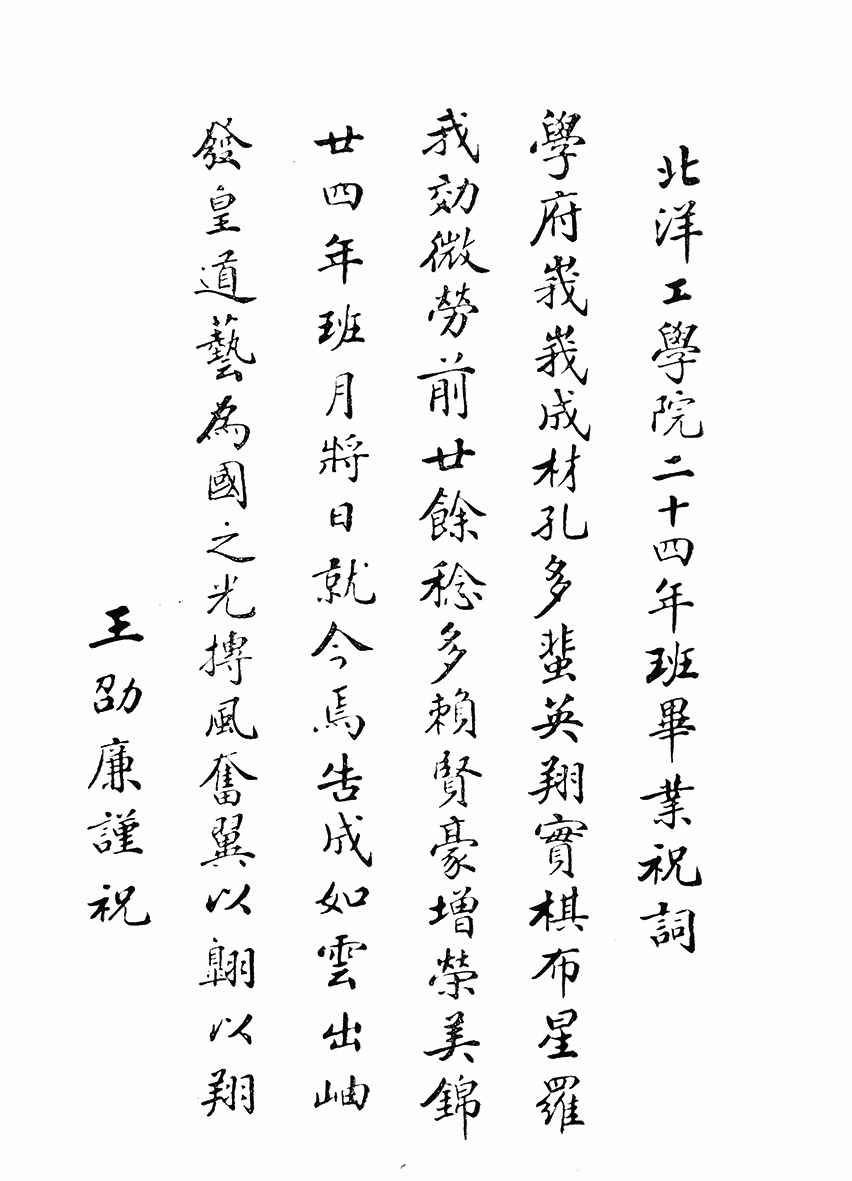 北洋工學院二十四年班畢業祝詞
學府峩峩成材孔多蜚英翔實棋布星羅
我効微勞前廿餘稔多賴賢豪增榮美錦
廿四年班月將日就今焉告成如雲出岫
發皇道藝為國之光摶風奮翼以翺以翔
王劭廉謹祝